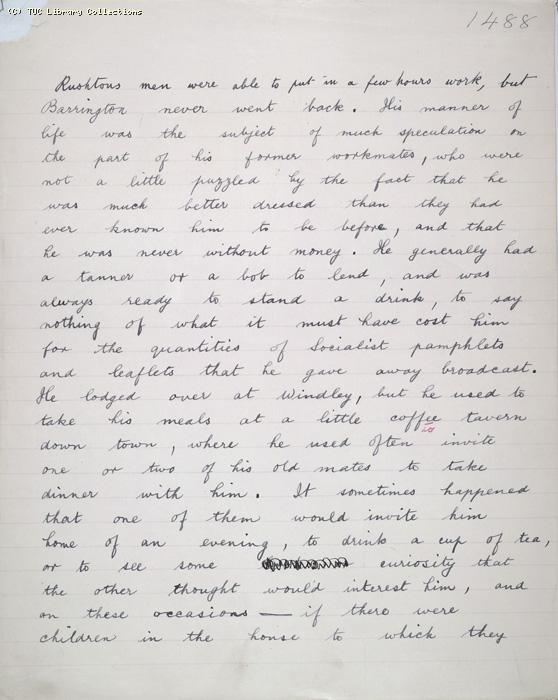 (C) TUC Library Collections
1488
Rushtons men were able to put in a few hours work, but
Barrington never went back. His manner of
life was the subject of much speculation on
the part of his former workmates, who were
not a little puzzled by the fact that he
was much better dressed than they had
ever known him to be before, and that
he was never without money. He generally had
a tanner or a bob to lend, and was
always ready to stand a drink, to say
nothing of what it must have cost him
for the quantities of Socialist pamphlets
and leaflets that he gave away broadcast.
He lodged over at Windley, but he used to
take his meals at a little coffee tavern
down town, where he used often to invite
one or two of his old mates to take
dinner with him. It sometimes happened
that one of them would invite him
home of an evening, to drink a cup of tea,
or to see some curiosity that
the other thought would interest him, and
on these occasions — if there were
children in the house to which they